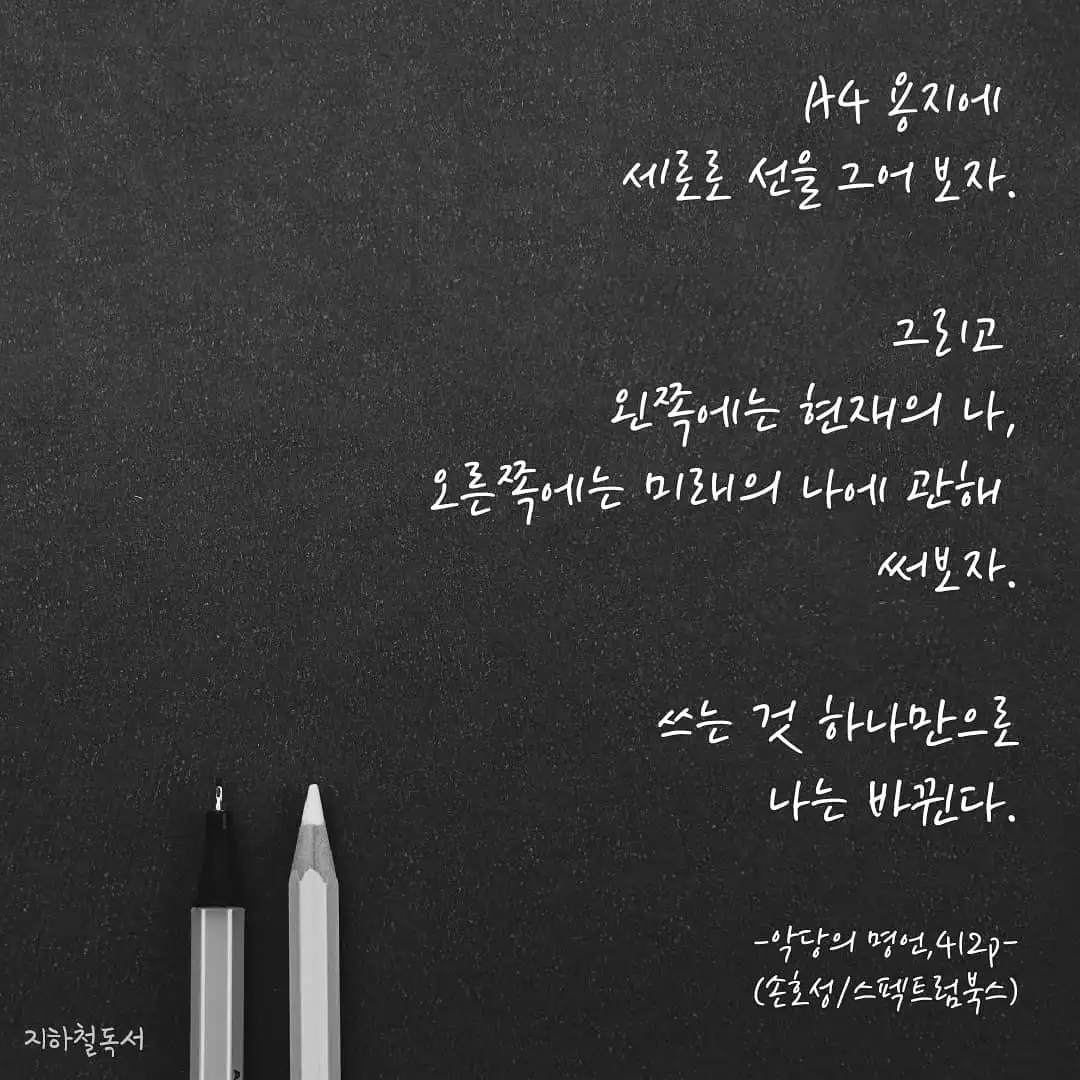 A4 용지에
세로로 선을 그어 보자.
그리고
왼쪽에는 현재의 나,
오른쪽에는 미래의 나에 관해
써보자.
쓰는 것 하나만으로
나는 바뀐다.
-악당의 명언,412p-
(손호성/스펙트럼북스)
지하철독서